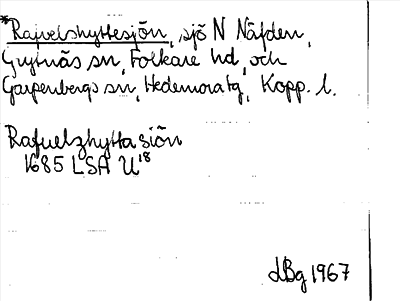 *Rafuelshyttesjön, sjö N Näfden,
Grytnäs sn, Folkare hd, och
Garpenbergs sn, Hedemora tg, Kopp. l.
Rafuelzhytta siön
1685 LSA U18
dBg 1967